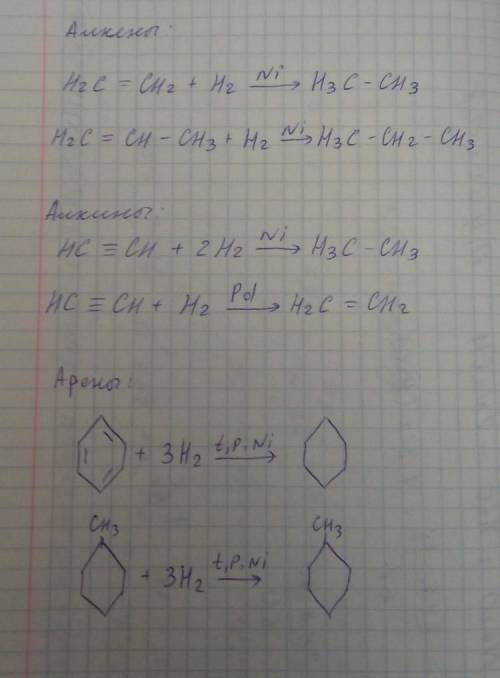 Алкены:
H₂C = CH₂ + H₂ —Ni→ H₃C - CH₃
H₂C = CH - CH₃ + H₂ —Ni→ H₃C - CH₂ - CH₃
Алкины:
HC ≡ CH + 2H₂ —Ni→ H₃C - CH₃
HC ≡ CH + H₂ —Pd→ H₂C = CH₂
Арены:
+ 3H₂ —t, P, Ni→
CH₃ CH₃
+ 3H₂ —t, P, Ni→